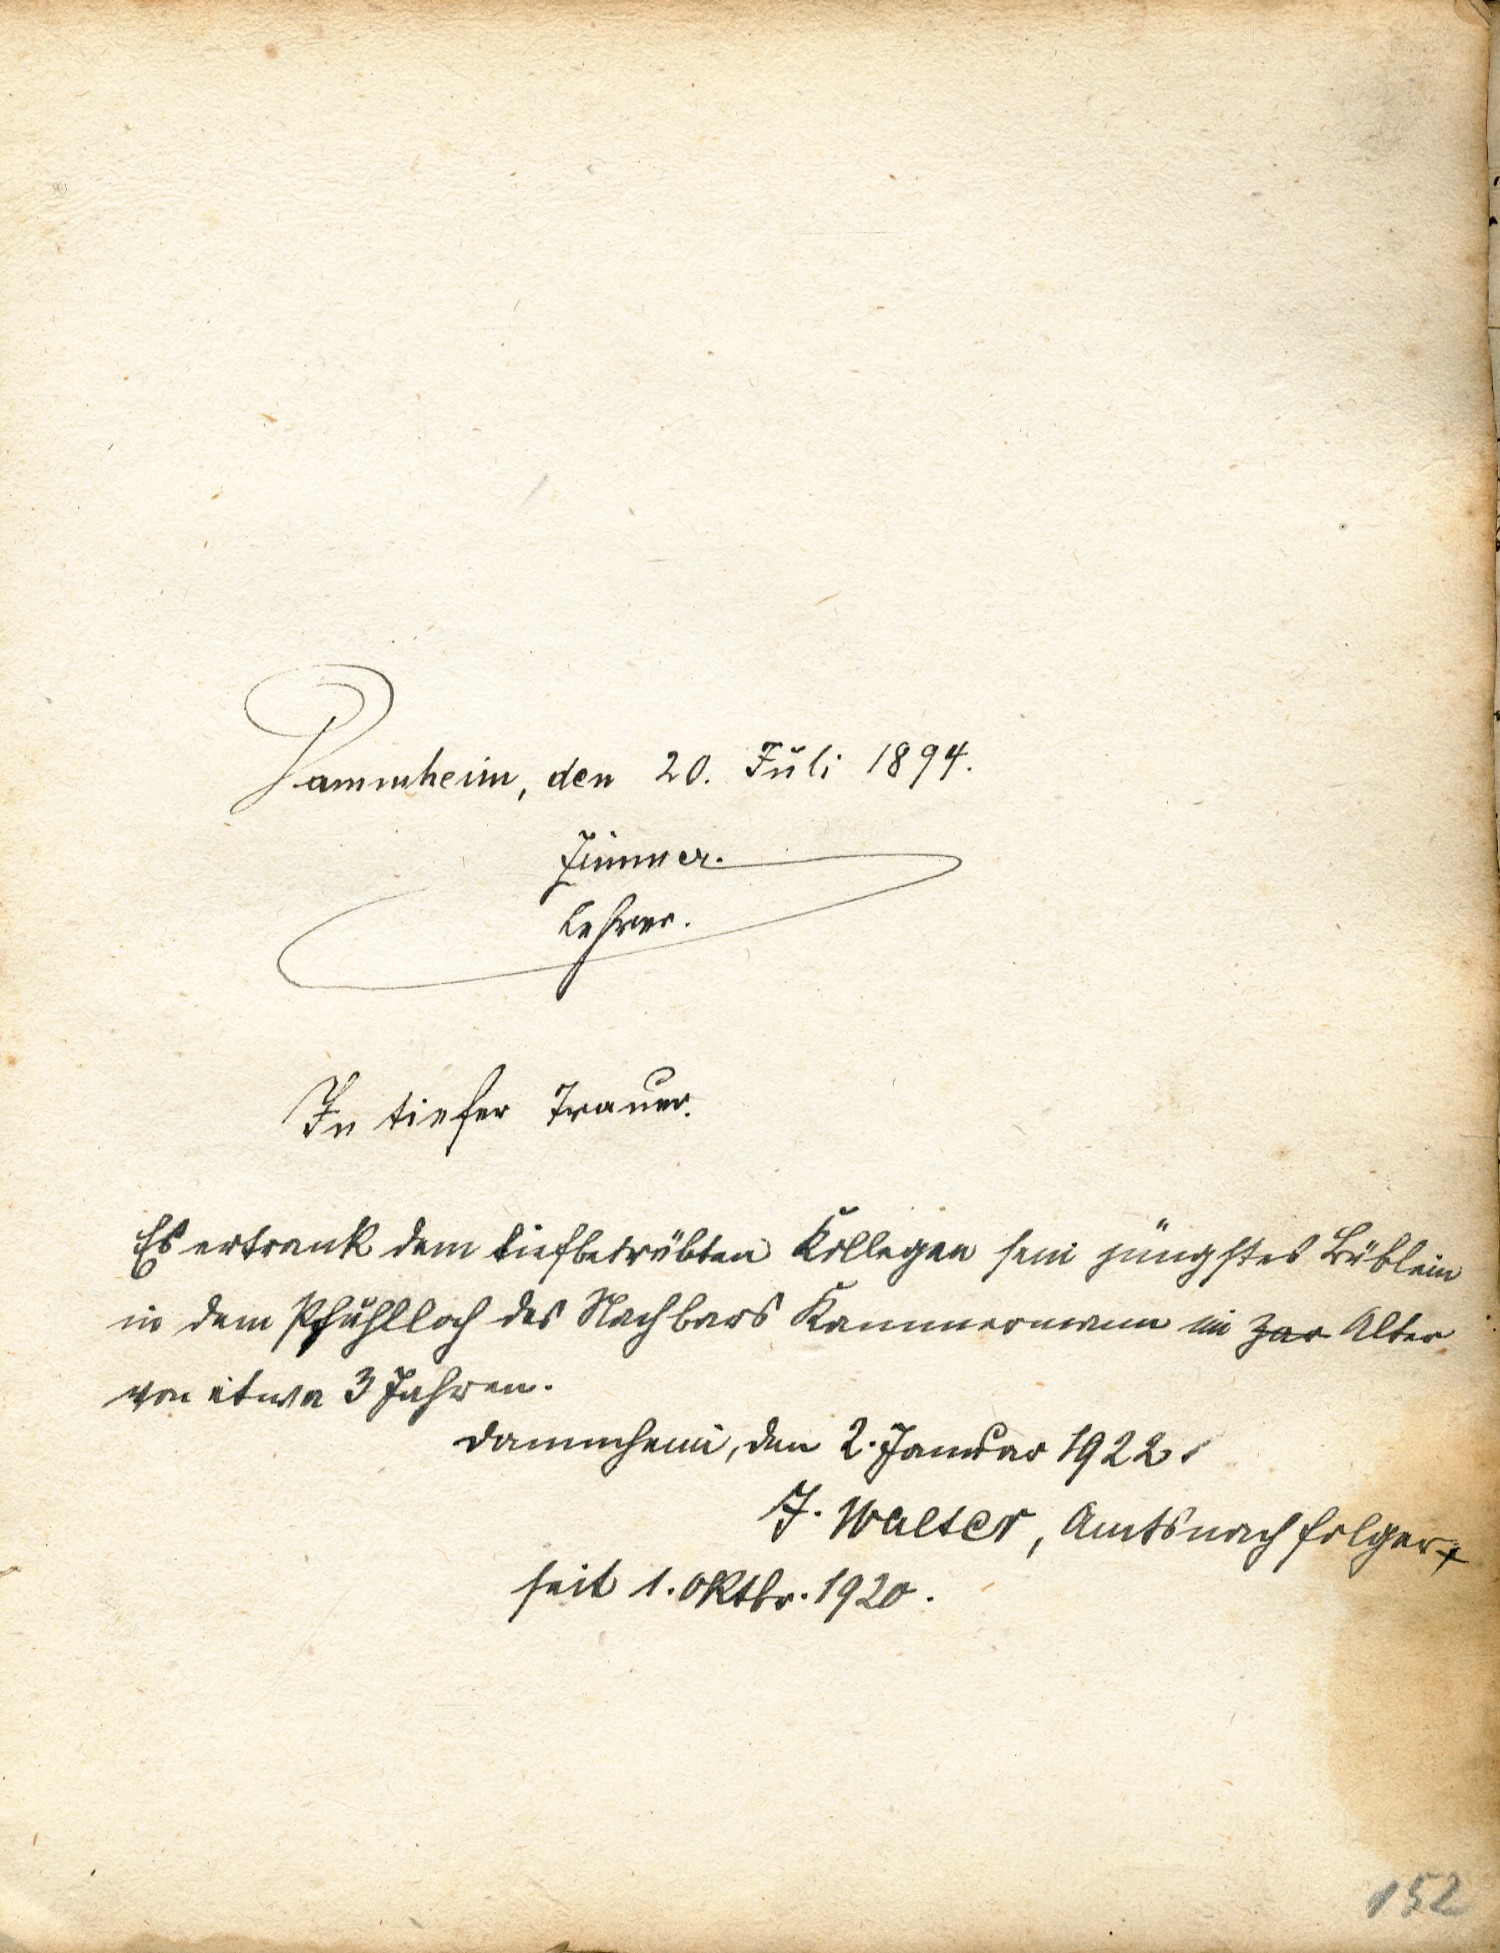 Dammheim, den 20. Juli 1894.
Zimmer.
Lehrer.
In tiefer Trauer.
Es ertrank dem tiefbetrübten Kollegen sein jüngstes Büblein
in dem Pfuhlloch des Nachbars Kammermann im zar Alter
von etwa 3 Jahren.
Dammheim, den 2. Januar 1922.
J. Walter, Amtsnachfolger
seit 1. Oktbr. 1920.
152